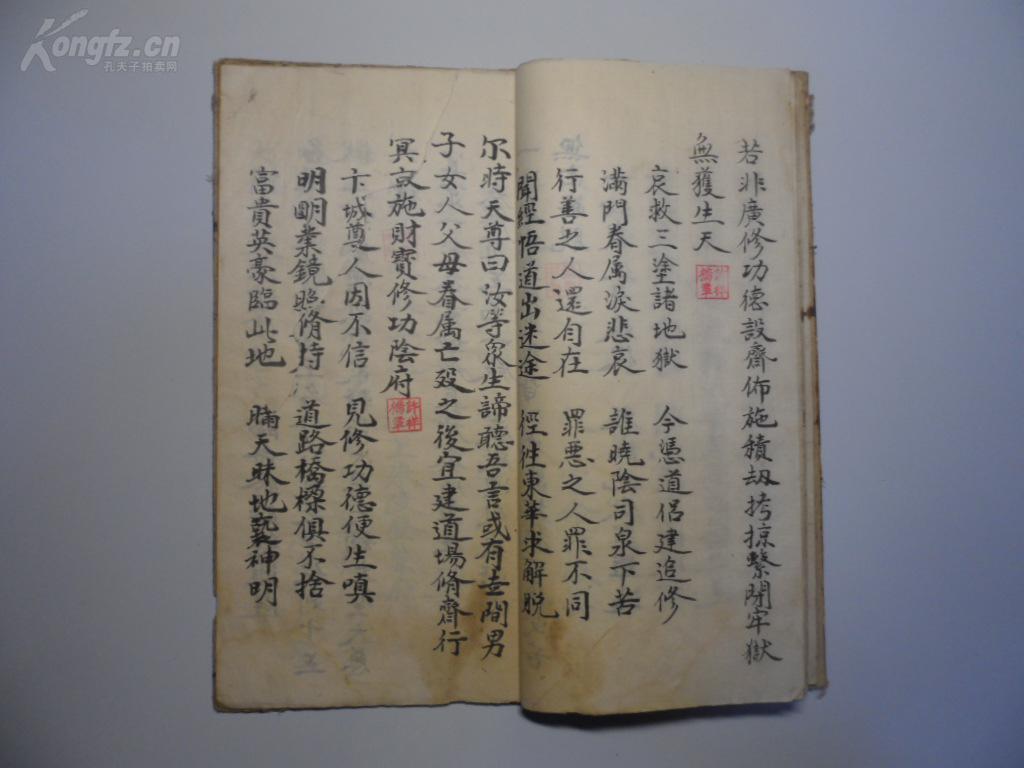 Kongfz.cn
孔夫子拍卖网
若非廣修功德設齋佈施積刼拷掠繫閉牢獄
無獲生天
哀救三塗諸地獄 今憑道侶建追修
满門眷属淚悲哀 誰曉陰司泉下苦
行善之人還自在 罪惡之人罪不同
聞經悟道出迷途 徑徃東華求解脱
尔時天尊曰汝等眾生諦聽吾言或有世間男
子女人父母眷属亡殁之後宜建道場脩齋行
冥京施財寳修功陰府
許祥
卞城尊人因不信 見修功德便生嗔
明明業鏡照脩持 道路橋樑俱不捨
富貴英豪臨此地 瞞天昧地神明